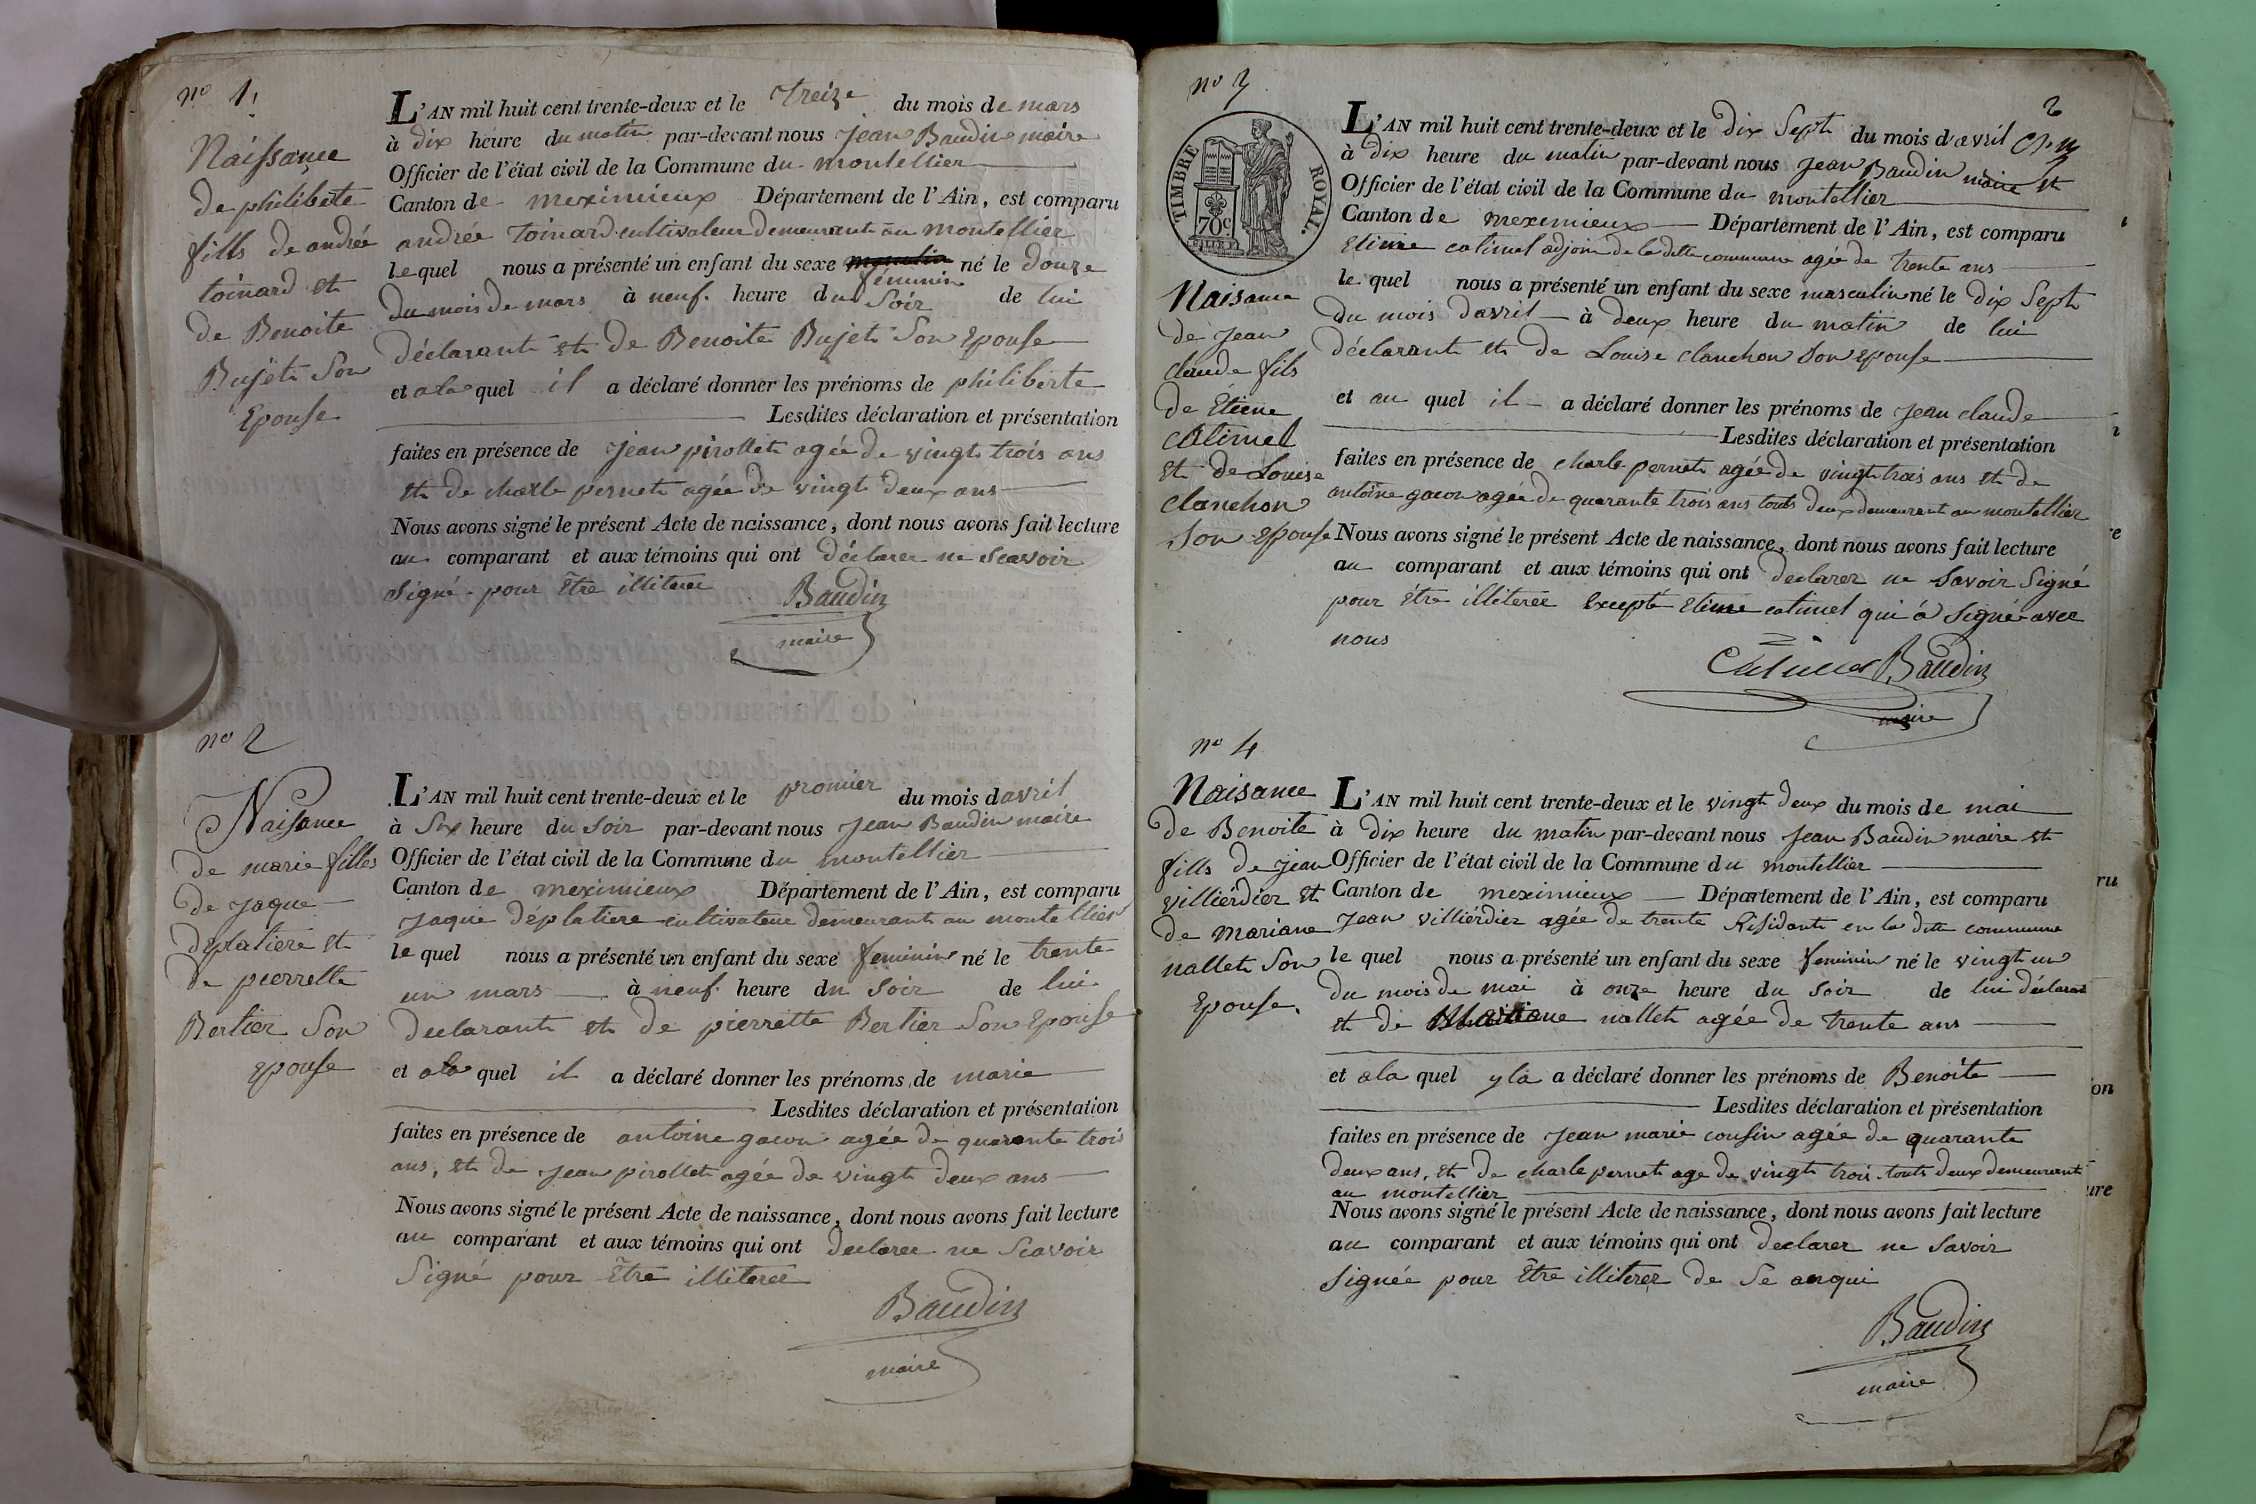 no 1.
Naissance
de philiberte
fills de andrée
toinard et
de Benoite
Bujet Son
Epouse
L'AN mil huit cent trente-deux et le Treize du mois de mars
à dix heure du matin par-devant nous jean Baudin maire
Officier de l'état civil de la Commune du montellier
Canton de meximieux Département de l'Ain, est comparu
andrée toinard cultivateur demeurant au montellier
le quel nous a présenté un enfant du sexe féminin né le douze
du mois de mars à neuf heure du Soir de lui
déclarant et de Benoite Bujet Son Epouse
et a la quel il a déclaré donner les prénoms de philiberte
Lesdites déclaration et présentation
faites en présence de jean pirollet agée de vingt trois ans
et de charle pernet agée de vingt deux ans
Nous avons signé le présent Acte de naissance, dont nous avons fait lecture
au comparant et aux témoins qui ont déclarer ne Scavoir
Signé pour Être illiteree
Baudin
maire
no 2
Naisance
de marie filles
de jaque
deplatiere et
de pierrette
Bertier Son
epouse
L'AN mil huit cent trente-deux et le promier du mois d avril
à Six heure du Soir par-devant nous jean Baudin maire
Officier de l'état civil de la Commune du montellier
Canton de meximieux Département de l'Ain, est comparu
jaque déplatiere cultivateur demeurant au montellier
le quel nous a présenté un enfant du sexe feminin né le trente
un mars à neuf heure du Soir de lui
declarant et de pierrette Bertier Son Epouse
et a la quel il a déclaré donner les prénoms de marie
Lesdites déclaration et présentation
faites en présence de antoine gacon agée de quarante trois
ans, et de jean pirollet agée de vingt deux ans
Nous avons signé le présent Acte de naissance, dont nous avons fait lecture
au comparant et aux témoins qui ont declaree ne Scavoir
Signé pour Être illiteree
Baudin
maire
no 3
2
TIMBRE ROYAL.
70c.
Naisance
de jean
claude fils
de Étiene
catimel
et de Louise
clanchon
Son Epouse
L'AN mil huit cent trente-deux et le dix Sept du mois d avril
à dix heure du matin par-devant nous jean Baudin maire et
Officier de l'état civil de la Commune du montellier
Canton de meximieux Département de l'Ain, est comparu
Etiene catimel adjoin de la ditte commune agée de trente ans
le quel nous a présenté un enfant du sexe masculin né le dix Sept
du mois davril à deux heure du matin de lui
déclarant et de Louise clanchon Son epouse
et au quel il a déclaré donner les prénoms de jean claude
Lesdites déclaration et présentation
faites en présence de charle pernet agée de vingt trois ans et de
antoine gacon agée de quarante trois ans touts deux demeurent au montellier
Nous avons signé le présent Acte de naissance, dont nous avons fait lecture
au comparant et aux témoins qui ont declarer ne Savoir Signé
pour être illiteree Excepté Etiene catimel qui à Signé avec
nous
Catimel Baudin
maire
no 4
Naisance
de Benoite
fills de jean
villiérdier et
de mariane
nallet Son
Epouse.
L'AN mil huit cent trente-deux et le vingt deux du mois de mai
à dix heure du matin par-devant nous jean Baudin maire et
Officier de l'état civil de la Commune du montellier
Canton de meximieux Département de l'Ain, est comparu
jean villiérdier agée de trente Résidant en la ditte commune
le quel nous a présenté un enfant du sexe feminin né le vingt un
du mois de mai à onze heure du Soir de lui déclarant
et de Mariane nallet agée de trente ans
et a la quel yla a déclaré donner les prénoms de Benoite
Lesdites déclaration et présentation
faites en présence de jean marie cousin agée de quarante
deux ans, et de charle pernet age de vingt trois touts deux demeurent
au montellier
Nous avons signé le présent Acte de naissance, dont nous avons fait lecture
au comparant et aux témoins qui ont declarer ne Savoir
Signée pour Être illiterer de Se anqui
Baudin
maire